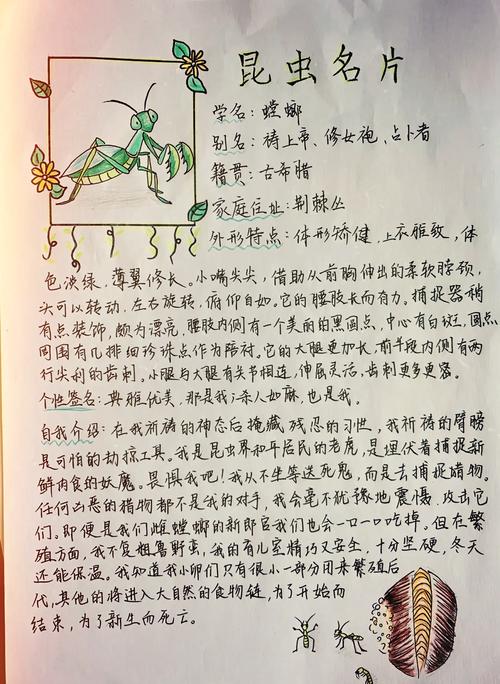 昆虫名片
学名：螳螂
别名：祷上帝、修女袍、占卜者
籍贯：古希腊
家庭住址：荆棘丛
外形特点：体形矫健，上衣雅致，体
色淡绿，薄翼修长。小嘴尖尖，借助从前胸伸出的柔软脖颈，
头可以转动，左右旋转，俯仰自如。它的腰肢长而有力。捕捉器稍
有点装饰，颇为漂亮，腰肢内侧有一个美丽的黑圆点，中心有白斑，圆点
周围有几排细珍珠点作为陪衬。它的大腿更加长，前半段内侧有两
行尖利的齿刺。小腿与大腿有关节相连，伸屈灵活，齿刺更多更密。
个性签名：典雅优美，那是我；杀人如麻，也是我。
自我介绍：在我祈祷的神态后掩藏残忍的习性，我祈祷的臂膀
是可怕的劫掠工具。我是昆虫界和平居民的老虎，是埋伏着捕捉新
鲜肉食的妖魔。畏惧我吧！我从不坐等送死鬼，而是去捕捉猎物。
任何凶恶的猎物都不是我的对手，我会毫不犹豫地震慑、攻击它
们。即便是我们雌螳螂的新郎官我们也会一口一口吃掉。但在繁
殖方面，我不复粗鲁野蛮，我的育儿室精巧又安全，十分坚硬，冬天
还能保温。我知道我小卵们只有很小一部分用来繁殖后
代，其他的将进入大自然的食物链，为了开始而
结束，为了新生而死亡。